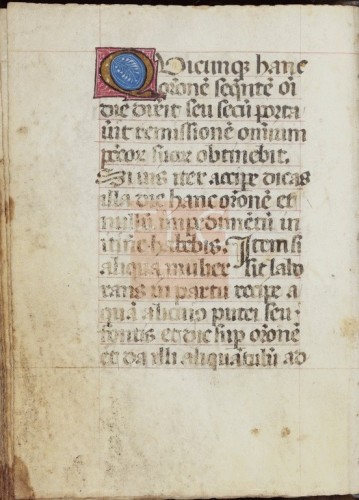 Quicunqȝ hanc
orōnē seqñtē oī
die dixit seu secū porta
uit remissionē omnium
pctōr̄ suor̄ obtinebit.
Si uis iter accipe dicas
illa die hanc orōnē et
nullū impedimētū in
itīne habebis. Item si
aliqua mulier sit labo
rans in partu recipe a
quā alicuiꝰ putei seu
fontis et dic sup orōnē
et da illi aliquātulū ad